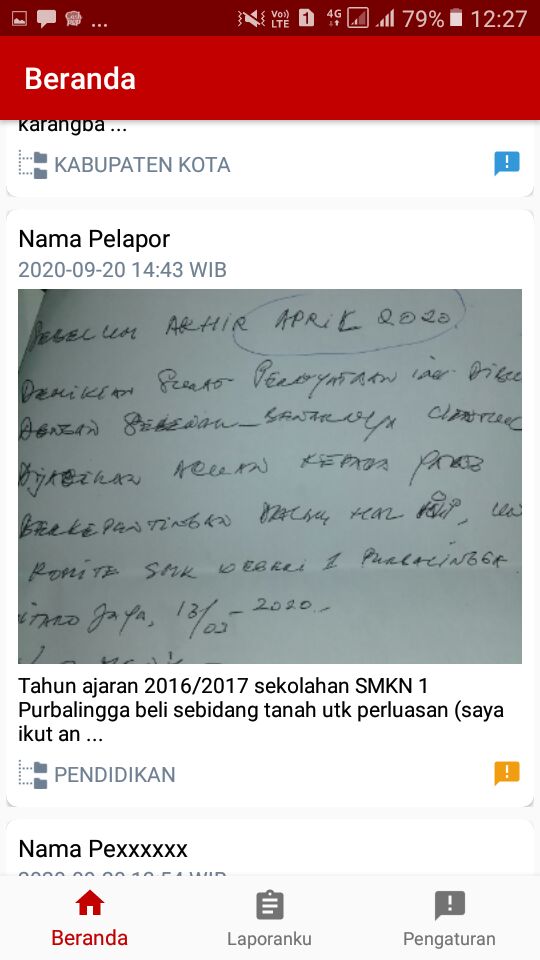 ...
Vo)) LTE 1 4G 79% 12:27
Beranda
karangba ...
KABUPATEN KOTA
Nama Pelapor
2020-09-20 14:43 WIB
SEBELUM AKHIR APRIL 2020
DEMIKIAN SURAT PERNYATAAN INI
DENGAN
DIJADIKAN ACUAN KEPADA
BERKEPENTINGAN DALAM HAL
KOMITE SMK NEGERI 1 PURBALINGGA
JAYA, 13/03-2020
Tahun ajaran 2016/2017 sekolahan SMKN 1
Purbalingga beli sebidang tanah utk perluasan (saya
ikut an ...
PENDIDIKAN
Nama Pexxxxxx
Beranda
Laporanku
Pengaturan